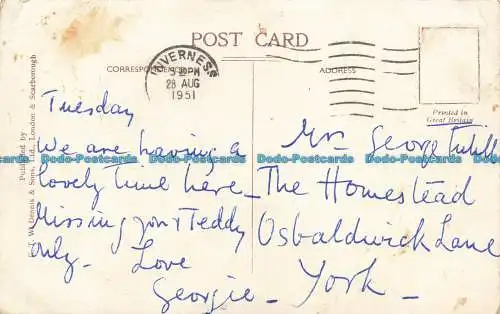 POST CARD
CORRESPONDENCE
ADDRESS
INVERNESS
28 AUG
1951
Printed in
Great Britain
Published by
Dennis & Sons, Ltd., London & Scarborough
Tuesday
We are having a
lovely time here -
Missing you & Teddy
only. Love
Georgie -
Mrs George
The Homestead
Osbaldwick Lane
York -
Dodo-Postcards Dodo-Postcards Dodo-Postcards Dodo-Postcards